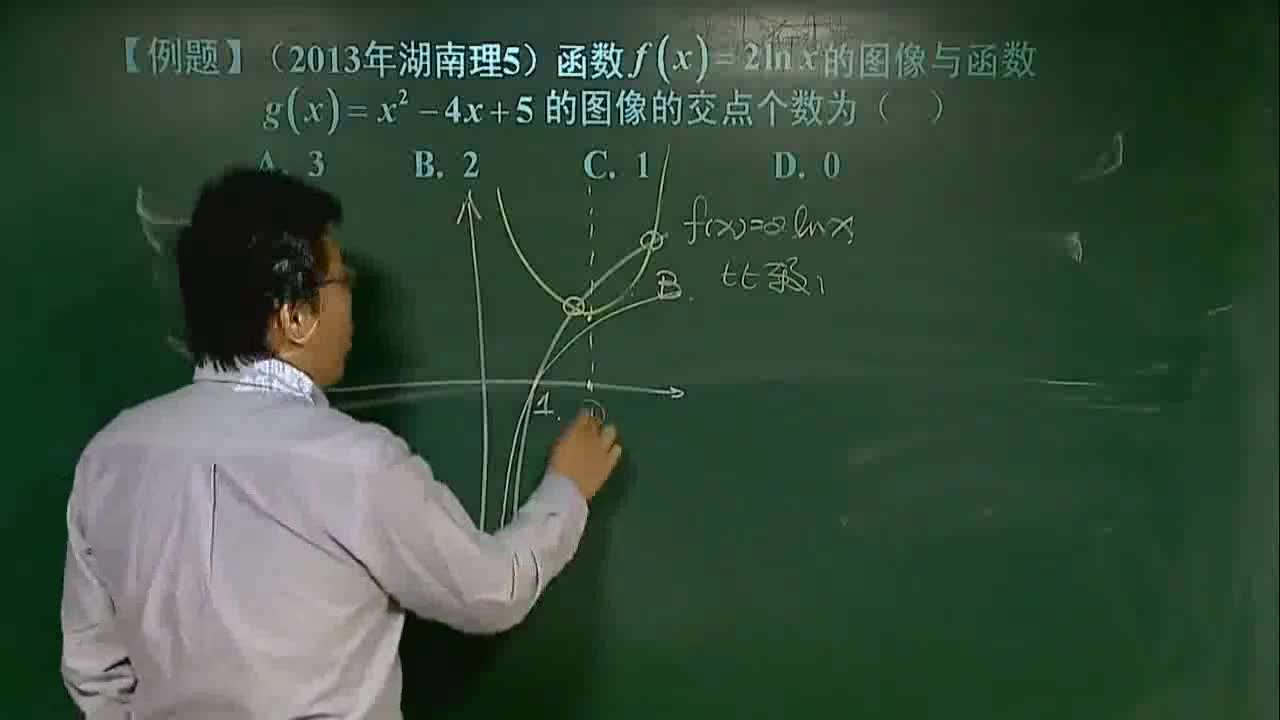 【例题】(2013年湖南理5) 函数f(x)=2ln x的图像与函数
g(x)=x²-4x+5 的图像的交点个数为( )
A. 3 B. 2 C. 1 D. 0
f(x)=2lnx
B.
1.